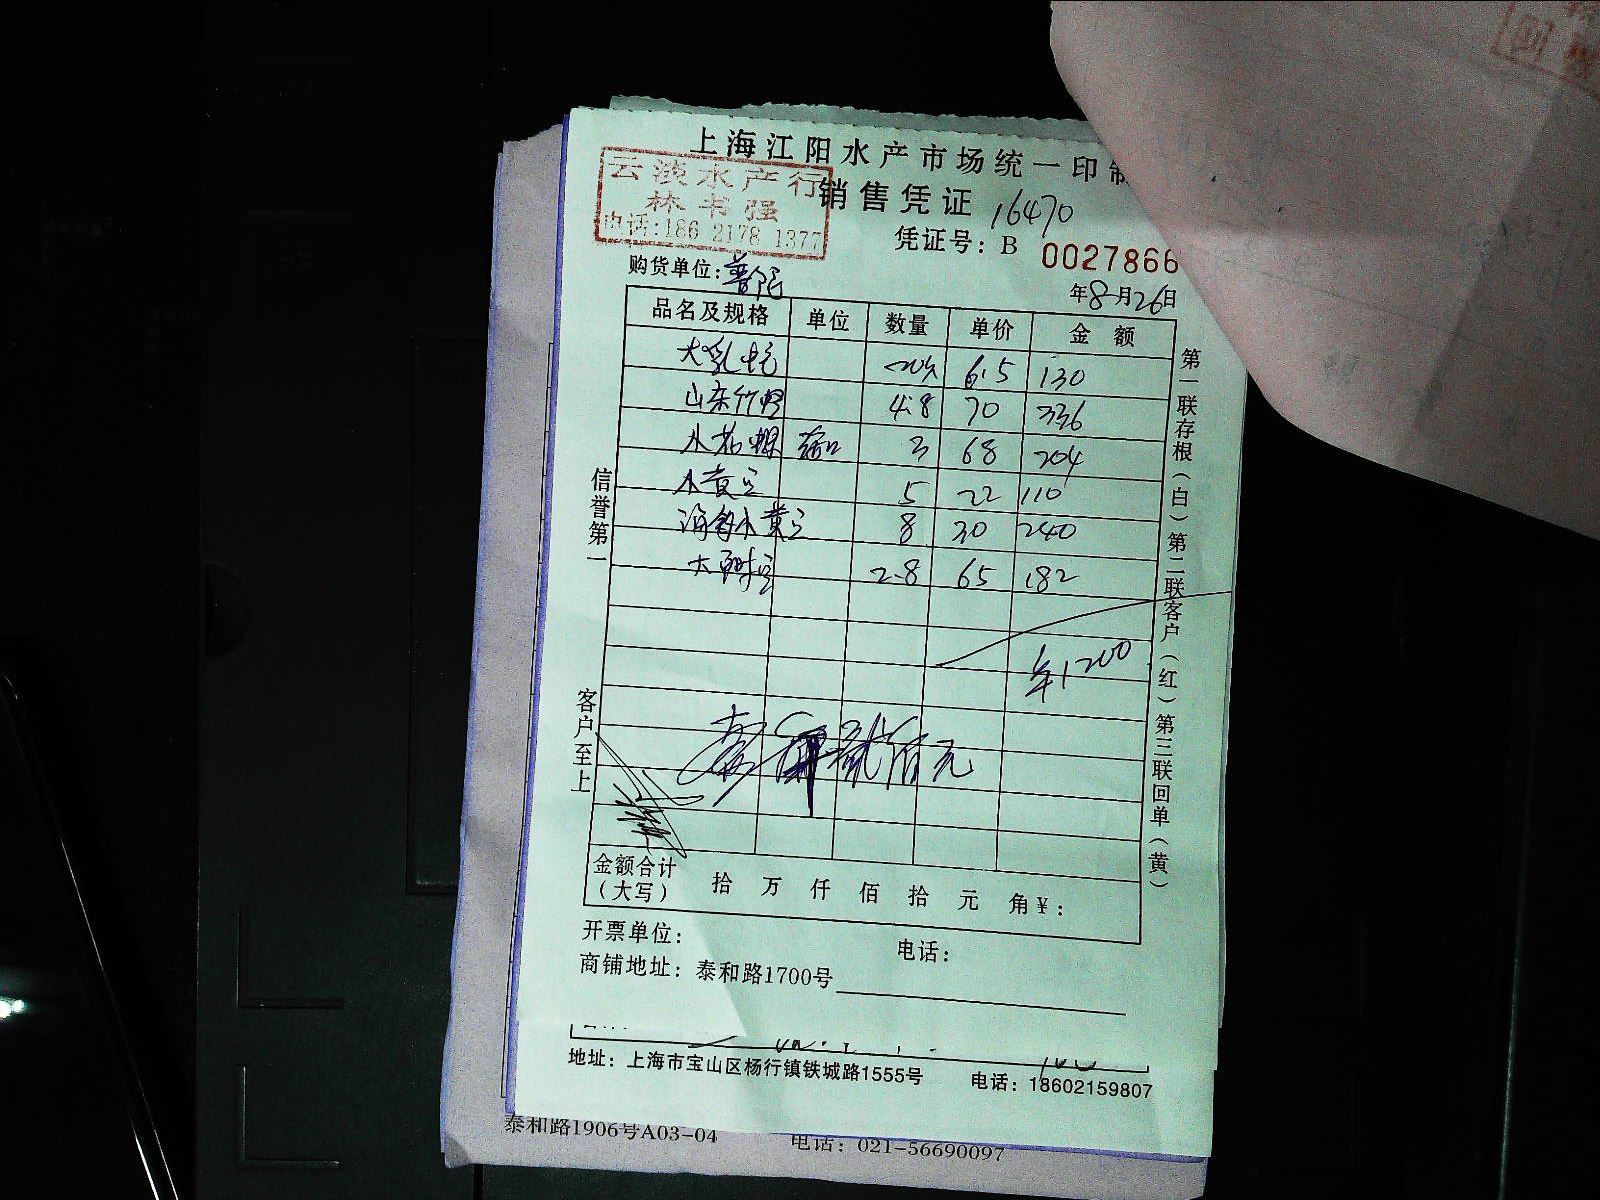 上海江阳水产市场统一印制
云淡水产行
林书强
电话:186 2178 1377
销售凭证 16470
凭证号: B 0027866
购货单位: 普陀
年8月26日
品名及规格 单位 数量 单价 金额
大乳 6.5 130
山东竹 4.8 70 336
水花 3 68 204
水黄豆 5 22 110
水黄豆 8 30 240
大 2.8 65 182
1200
贰佰元
金额合计
(大写) 拾 万 仟 佰 拾 元 角 ¥:
开票单位: 电话:
商铺地址: 泰和路1700号
信誉第一
客户至上
第一联存根(白)第二联客户(红)第三联回单(黄)
地址: 上海市宝山区杨行镇铁城路1555号 电话: 18602159807
泰和路1906号A03-04 电话: 021-56690097